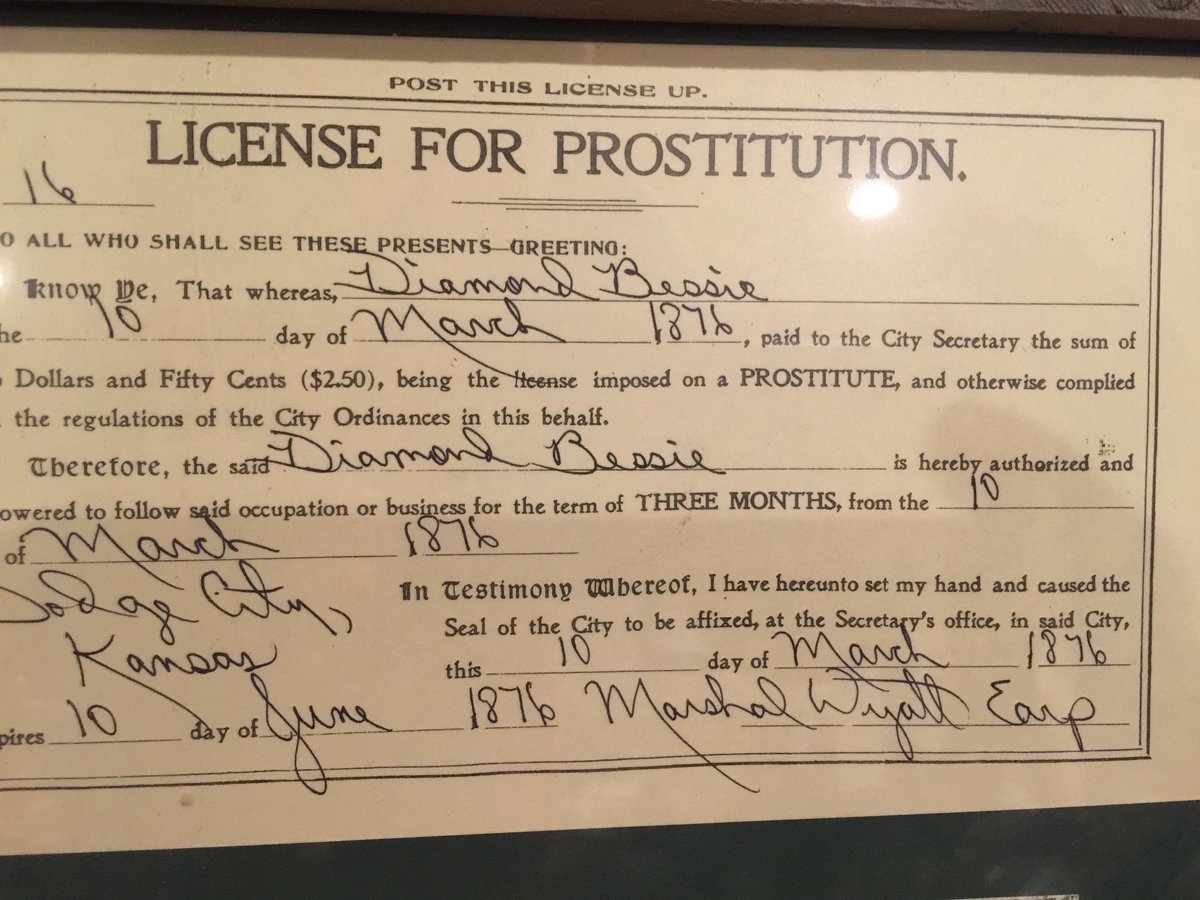 POST THIS LICENSE UP.
LICENSE FOR PROSTITUTION.
16
O ALL WHO SHALL SEE THESE PRESENTS—GREETING:
Know Ye, That whereas, Diamond Bessie
he 10 day of March 1876, paid to the City Secretary the sum of
o Dollars and Fifty Cents ($2.50), being the license imposed on a PROSTITUTE, and otherwise complied
the regulations of the City Ordinances in this behalf.
Therefore, the said Diamond Bessie is hereby authorized and
owered to follow said occupation or business for the term of THREE MONTHS, from the 10
of March 1876
Dodge City,
Kansas
In Testimony Whereof, I have hereunto set my hand and caused the
Seal of the City to be affixed, at the Secretary's office, in said City,
this 10 day of March 1876
pires 10 day of June 1876 Marshal Wyatt Earp